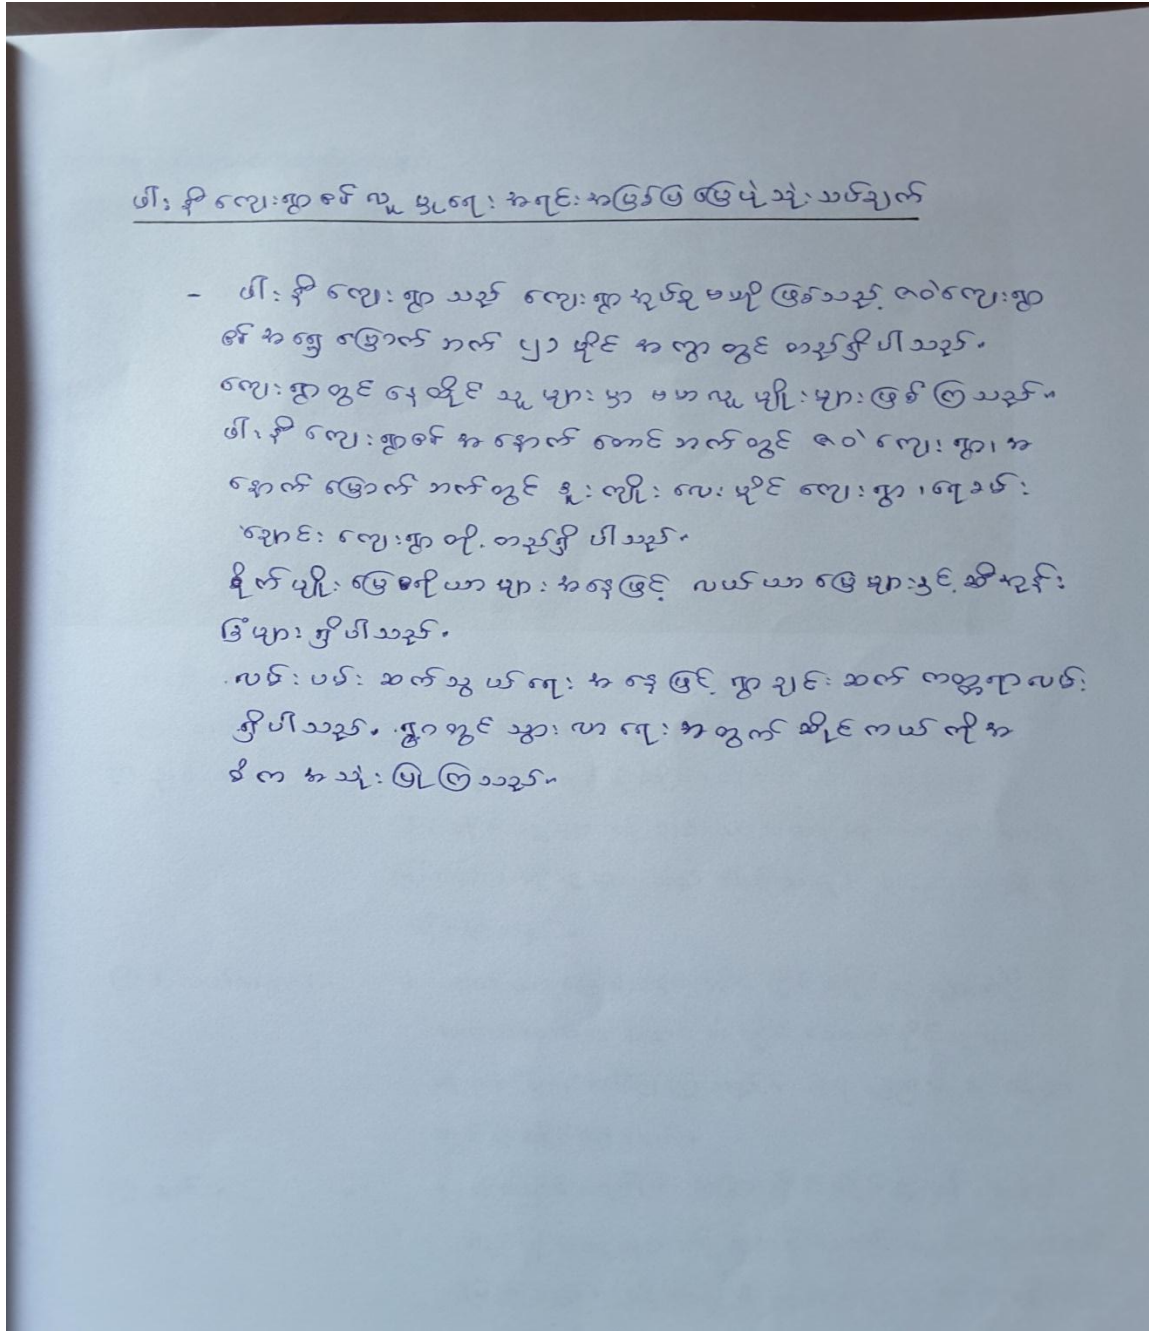 ပါးနီကျေးရွာ၏ လူမှုရေး အရင်းအမြစ်ပြ မြေပုံသုံးသပ်ချက်
- ပါးနီကျေးရွာသည် ကျေးရွာအုပ်စုမယိုဖြစ်သည့် ဇဝဲကျေးရွာ
၏ အရှေ့မြောက်ဘက် ၂၁ မိုင် အကွာတွင် တည်ရှိပါသည်။
ကျေးရွာတွင် နေထိုင်သူများမှာ ဗမာလူမျိုးများဖြစ်ကြသည်။
ပါးနီကျေးရွာ၏ အနောက်တောင်ဘက်တွင် ဇဝဲကျေးရွာ၊ အ
နောက်မြောက်ဘက်တွင် နူးကျိုး လေးမိုင်ကျေးရွာ၊ ရေခမ်း
ချောင်းကျေးရွာတို့ တည်ရှိပါသည်။
စိုက်ပျိုးမြေဧရိယာများအနေဖြင့် လယ်ယာမြေများနှင့် ဆီအုန်း
ခြံများရှိပါသည်။
လမ်းပမ်းဆက်သွယ်ရေးအနေဖြင့် ရွာချင်းဆက် ကတ္တရာလမ်း
ရှိပါသည်။ ရွာတွင် သွားလာရေးအတွက် ဆိုင်ကယ်ကိုအ
ဓိကအသုံးပြုကြသည်။